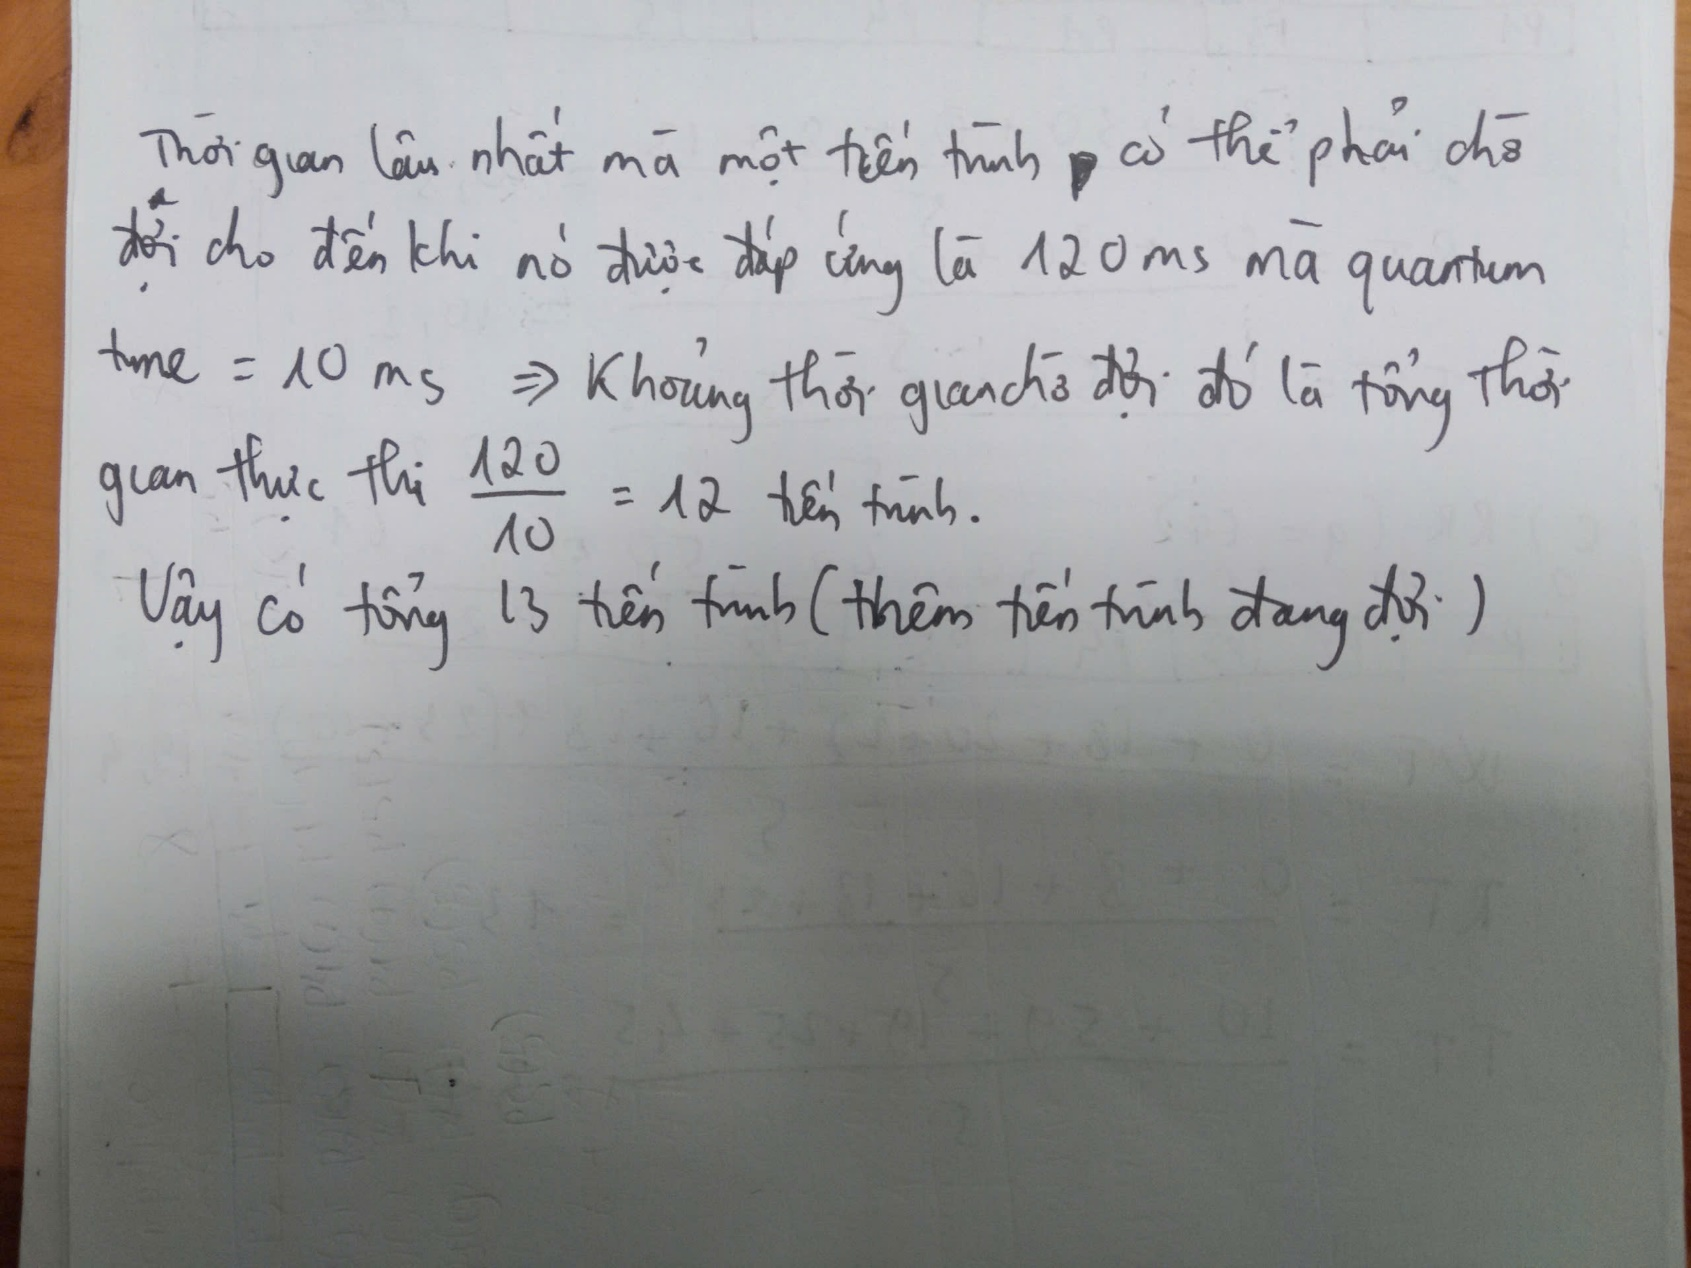 Thời gian lâu nhất mà một tiến trình có thể phải chờ
đợi cho đến khi nó được đáp ứng là 120 ms mà quantum
time = 10 ms => Khoảng thời gian chờ đợi đó là tổng thời
gian thực thi 120/10 = 12 tiến trình.
Vậy có tổng 13 tiến trình (thêm tiến trình đang đợi)